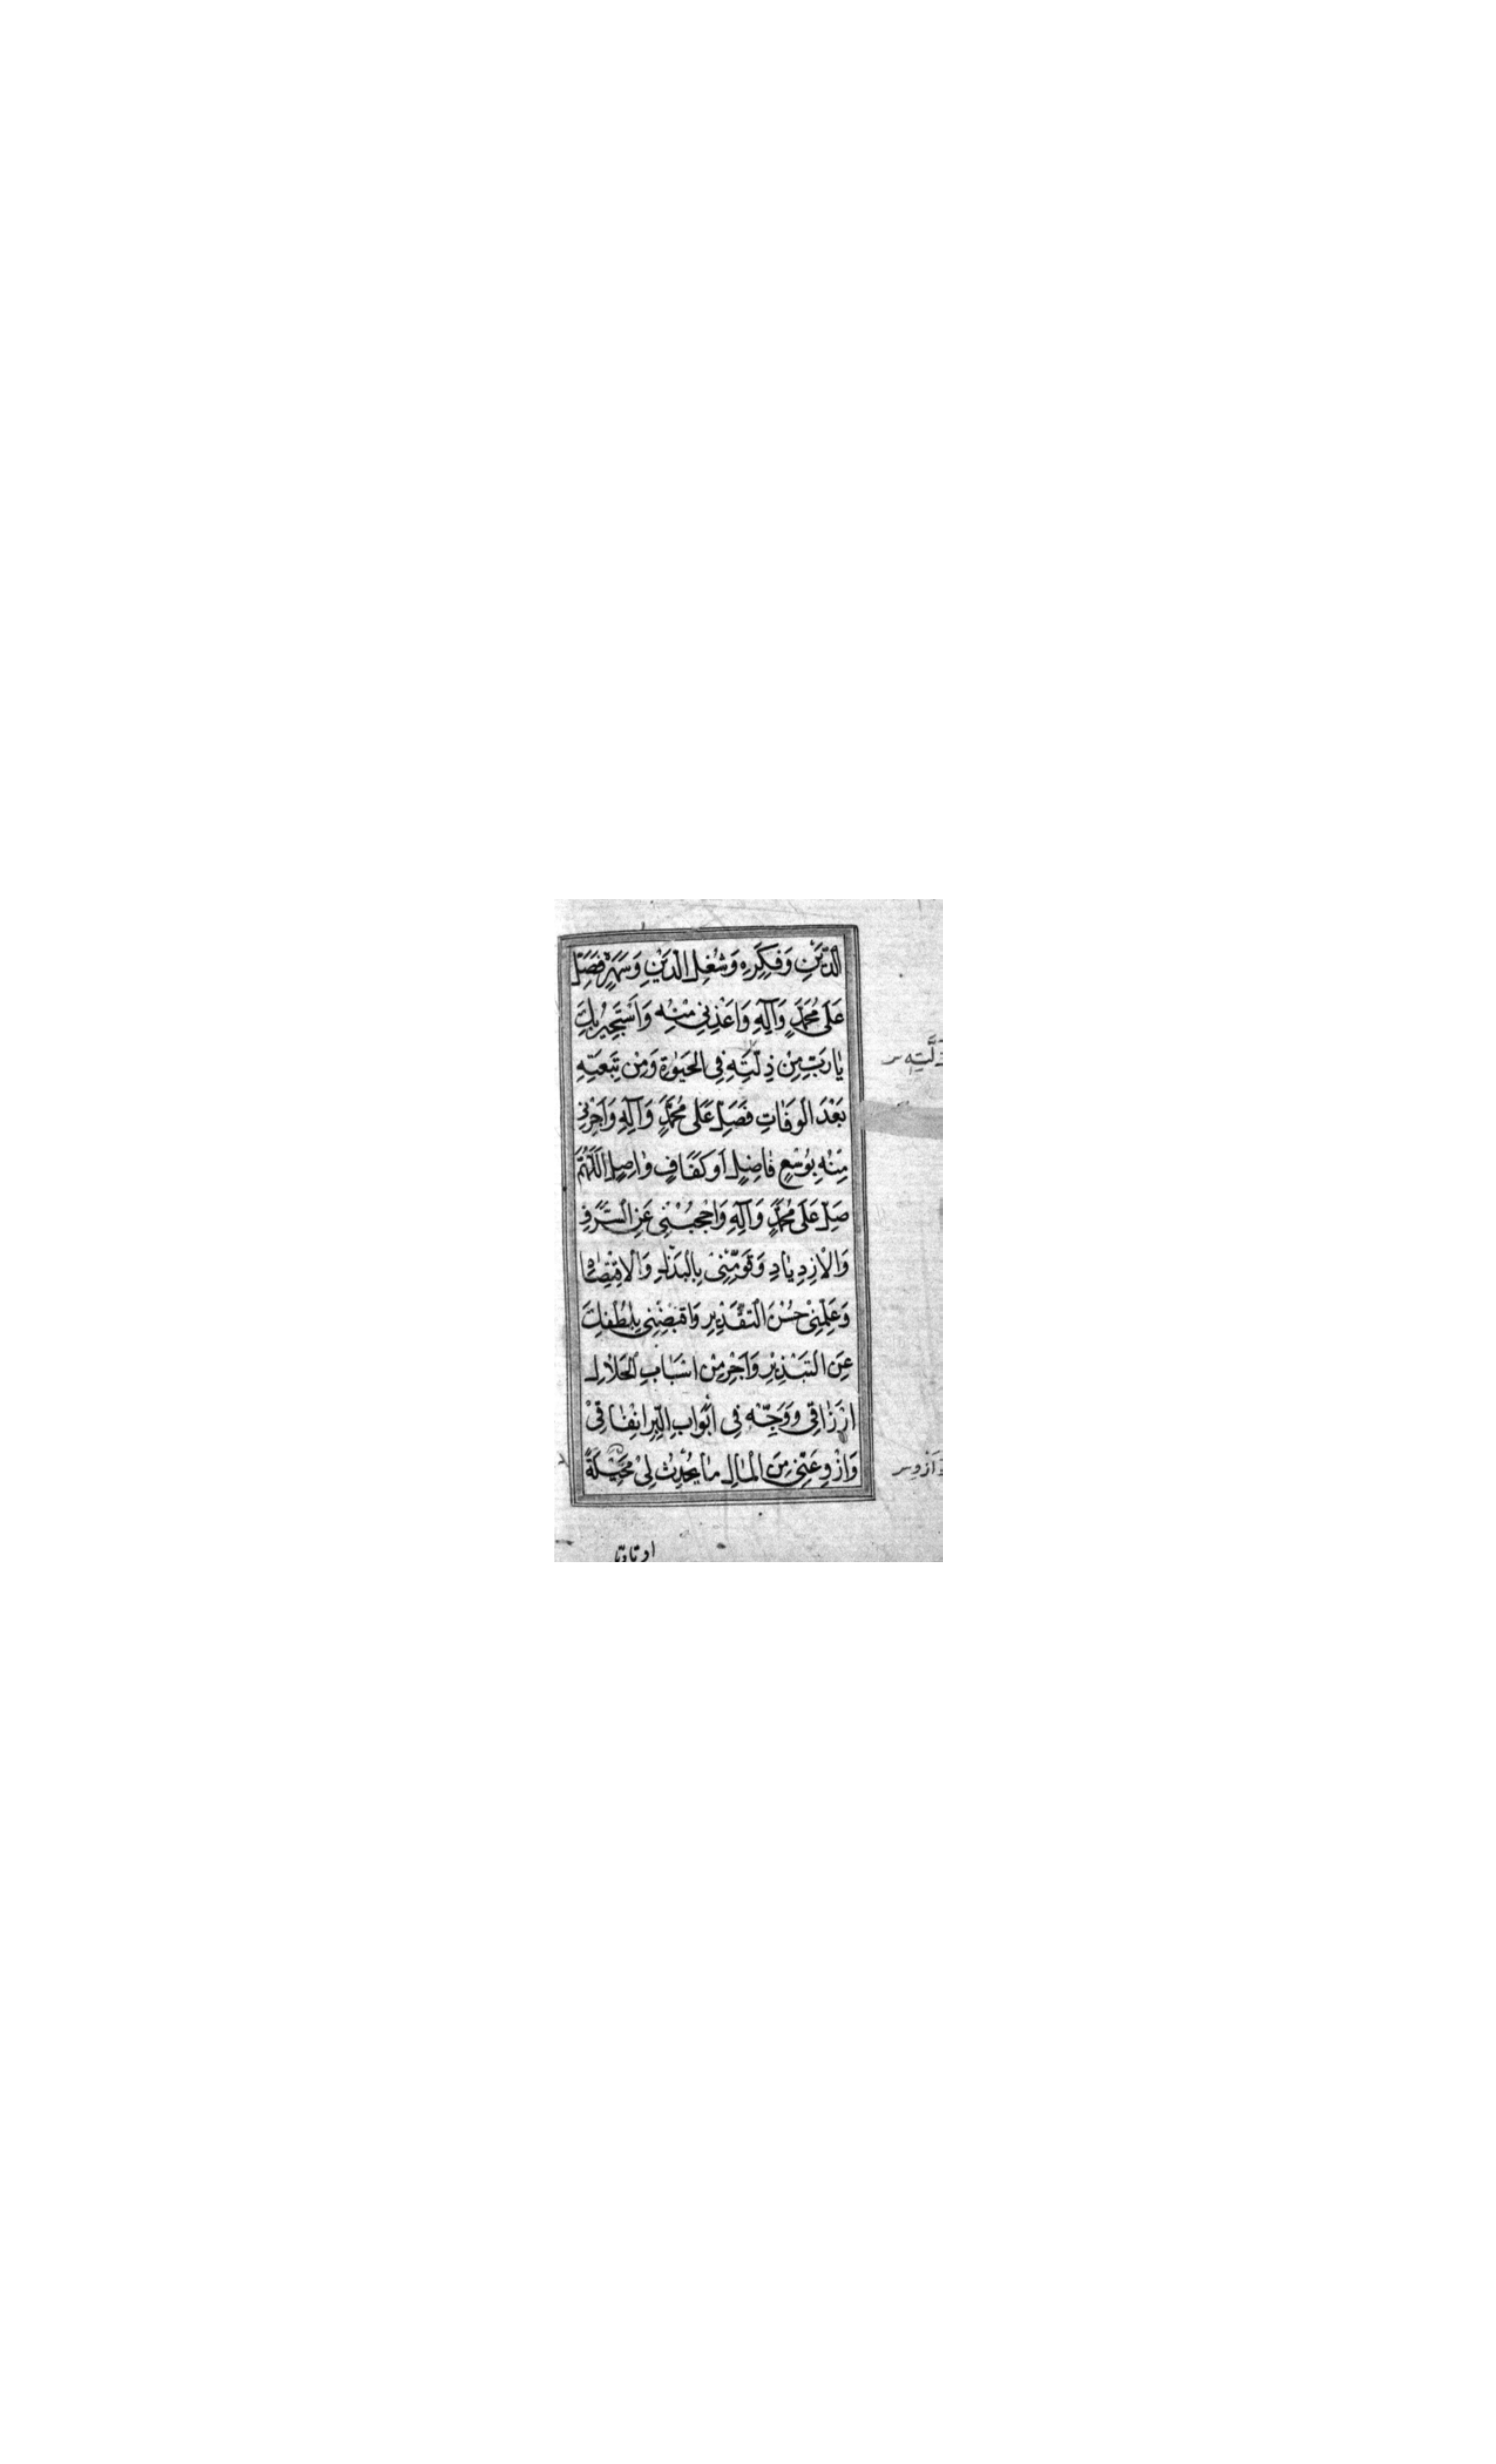 الدَّيْنِ وَفِكْرِهِ وَشُغْلِ الدَّيْنِ وَسَهَرِهِ فَصَلِّ
عَلَى مُحَمَّدٍ وَآلِهِ وَاَعِذْنِي مِنْهُ وَاَسْتَجِيرُ بِكَ
يَا رَبِّ مِنْ ذِلَّتِهِ فِي الْحَيٰوةِ وَمِنْ تَبِعَتِهِ
بَعْدَ الْوَفَاتِ فَصَلِّ عَلَى مُحَمَّدٍ وَآلِهِ وَاَجِرْنِي
مِنْهُ بِوُسْعٍ فَاضِلٍ اَوْ كَفَافٍ وَاصِلٍ اَللّٰهُمَّ
صَلِّ عَلَى مُحَمَّدٍ وَآلِهِ وَاحْجُبْنِي عَنِ السَّرَفِ
وَالْاِزْدِيَادِ وَقَوِّمْنِي بِالْبَذْلِ وَالْاِقْتِصَادِ
وَعَلِّمْنِي حُسْنَ التَّقْدِيرِ وَاقْبِضْنِي بِلُطْفِكَ
عَنِ التَّبْذِيرِ وَاَجْرِ مِنْ اَسْبَابِ الْحَلَالِ
اَرْزَاقِي وَوَجِّهْ فِي اَبْوَابِ الْبِرِّ اِنْفَاقِي
وَازْوِ عَنِّي مِنَ الْمَالِ مَا يُحْدِثُ لِي مَخِيلَةً
ذَلَّتِهِ س